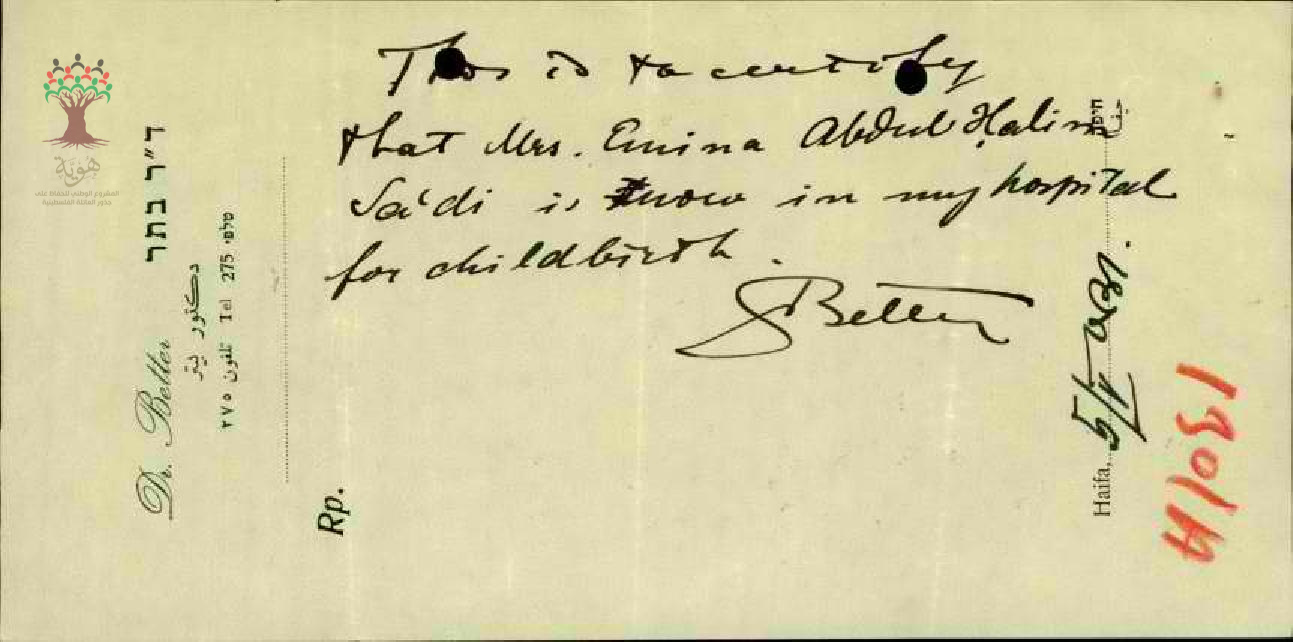 هوية
المشروع الوطني للحفاظ على
جذور العائلة الفلسطينية
Dr. Better ד״ר בתר
دكتور بتر
٢٧٥ تلفون Tel 275 טלפ׳
This is to certify
that Mrs. Emina Abdul Ḥalim
Sa'di is now in my hospital
for childbirth.
Better
Rp.
Haifa,